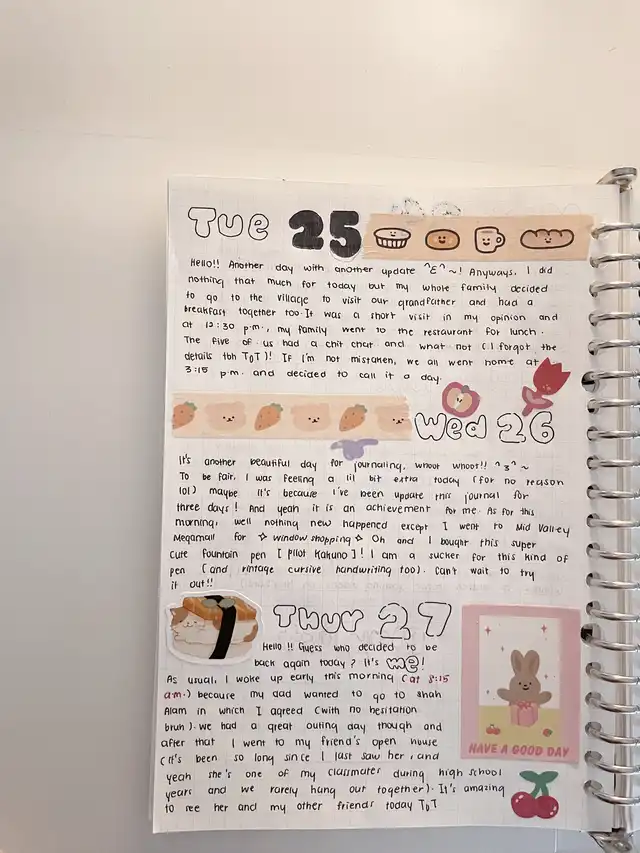 Tue 25
Hello!! Another day with another update ^ε^~! Anyways, I did
nothing that much for today but my whole family decided
to go to the village to visit our grandfather and had a
breakfast together too. It was a short visit in my opinion and
at 12:30 p.m., my family went to the restaurant for lunch.
The five of us had a chit chat and what not (I forgot the
details tbh ToT)! If I'm not mistaken, we all went home at
3:15 p.m. and decided to call it a day.
Wed 26
It's another beautiful day for journaling, whoot whoot!! ^3^~
To be fair, I was feeling a lil bit extra today (for no reason
lol) maybe it's because I've been update this journal for
three days! And yeah it is an achievement for me. As for this
morning, well nothing new happened except I went to Mid Valley
Megamall for ✧ window shopping ✧ Oh and I bought this super
cute fountain pen [Pilot Kakuno]! I am a sucker for this kind of
pen (and vintage cursive handwriting too). Can't wait to try
it out!!
Thur 27
Hello!! Guess who decided to be
back again today? It's me!
As usual, I woke up early this morning (at 8:15
a.m.) because my dad wanted to go to Shah
Alam in which I agreed (with no hesitation
bruh). We had a great outing day though and
after that I went to my friend's open house
(it's been so long since I last saw her, and
yeah she's one of my classmates during high school
years and we rarely hang out together). It's amazing
to see her and my other friends today ToT
HAVE A GOOD DAY